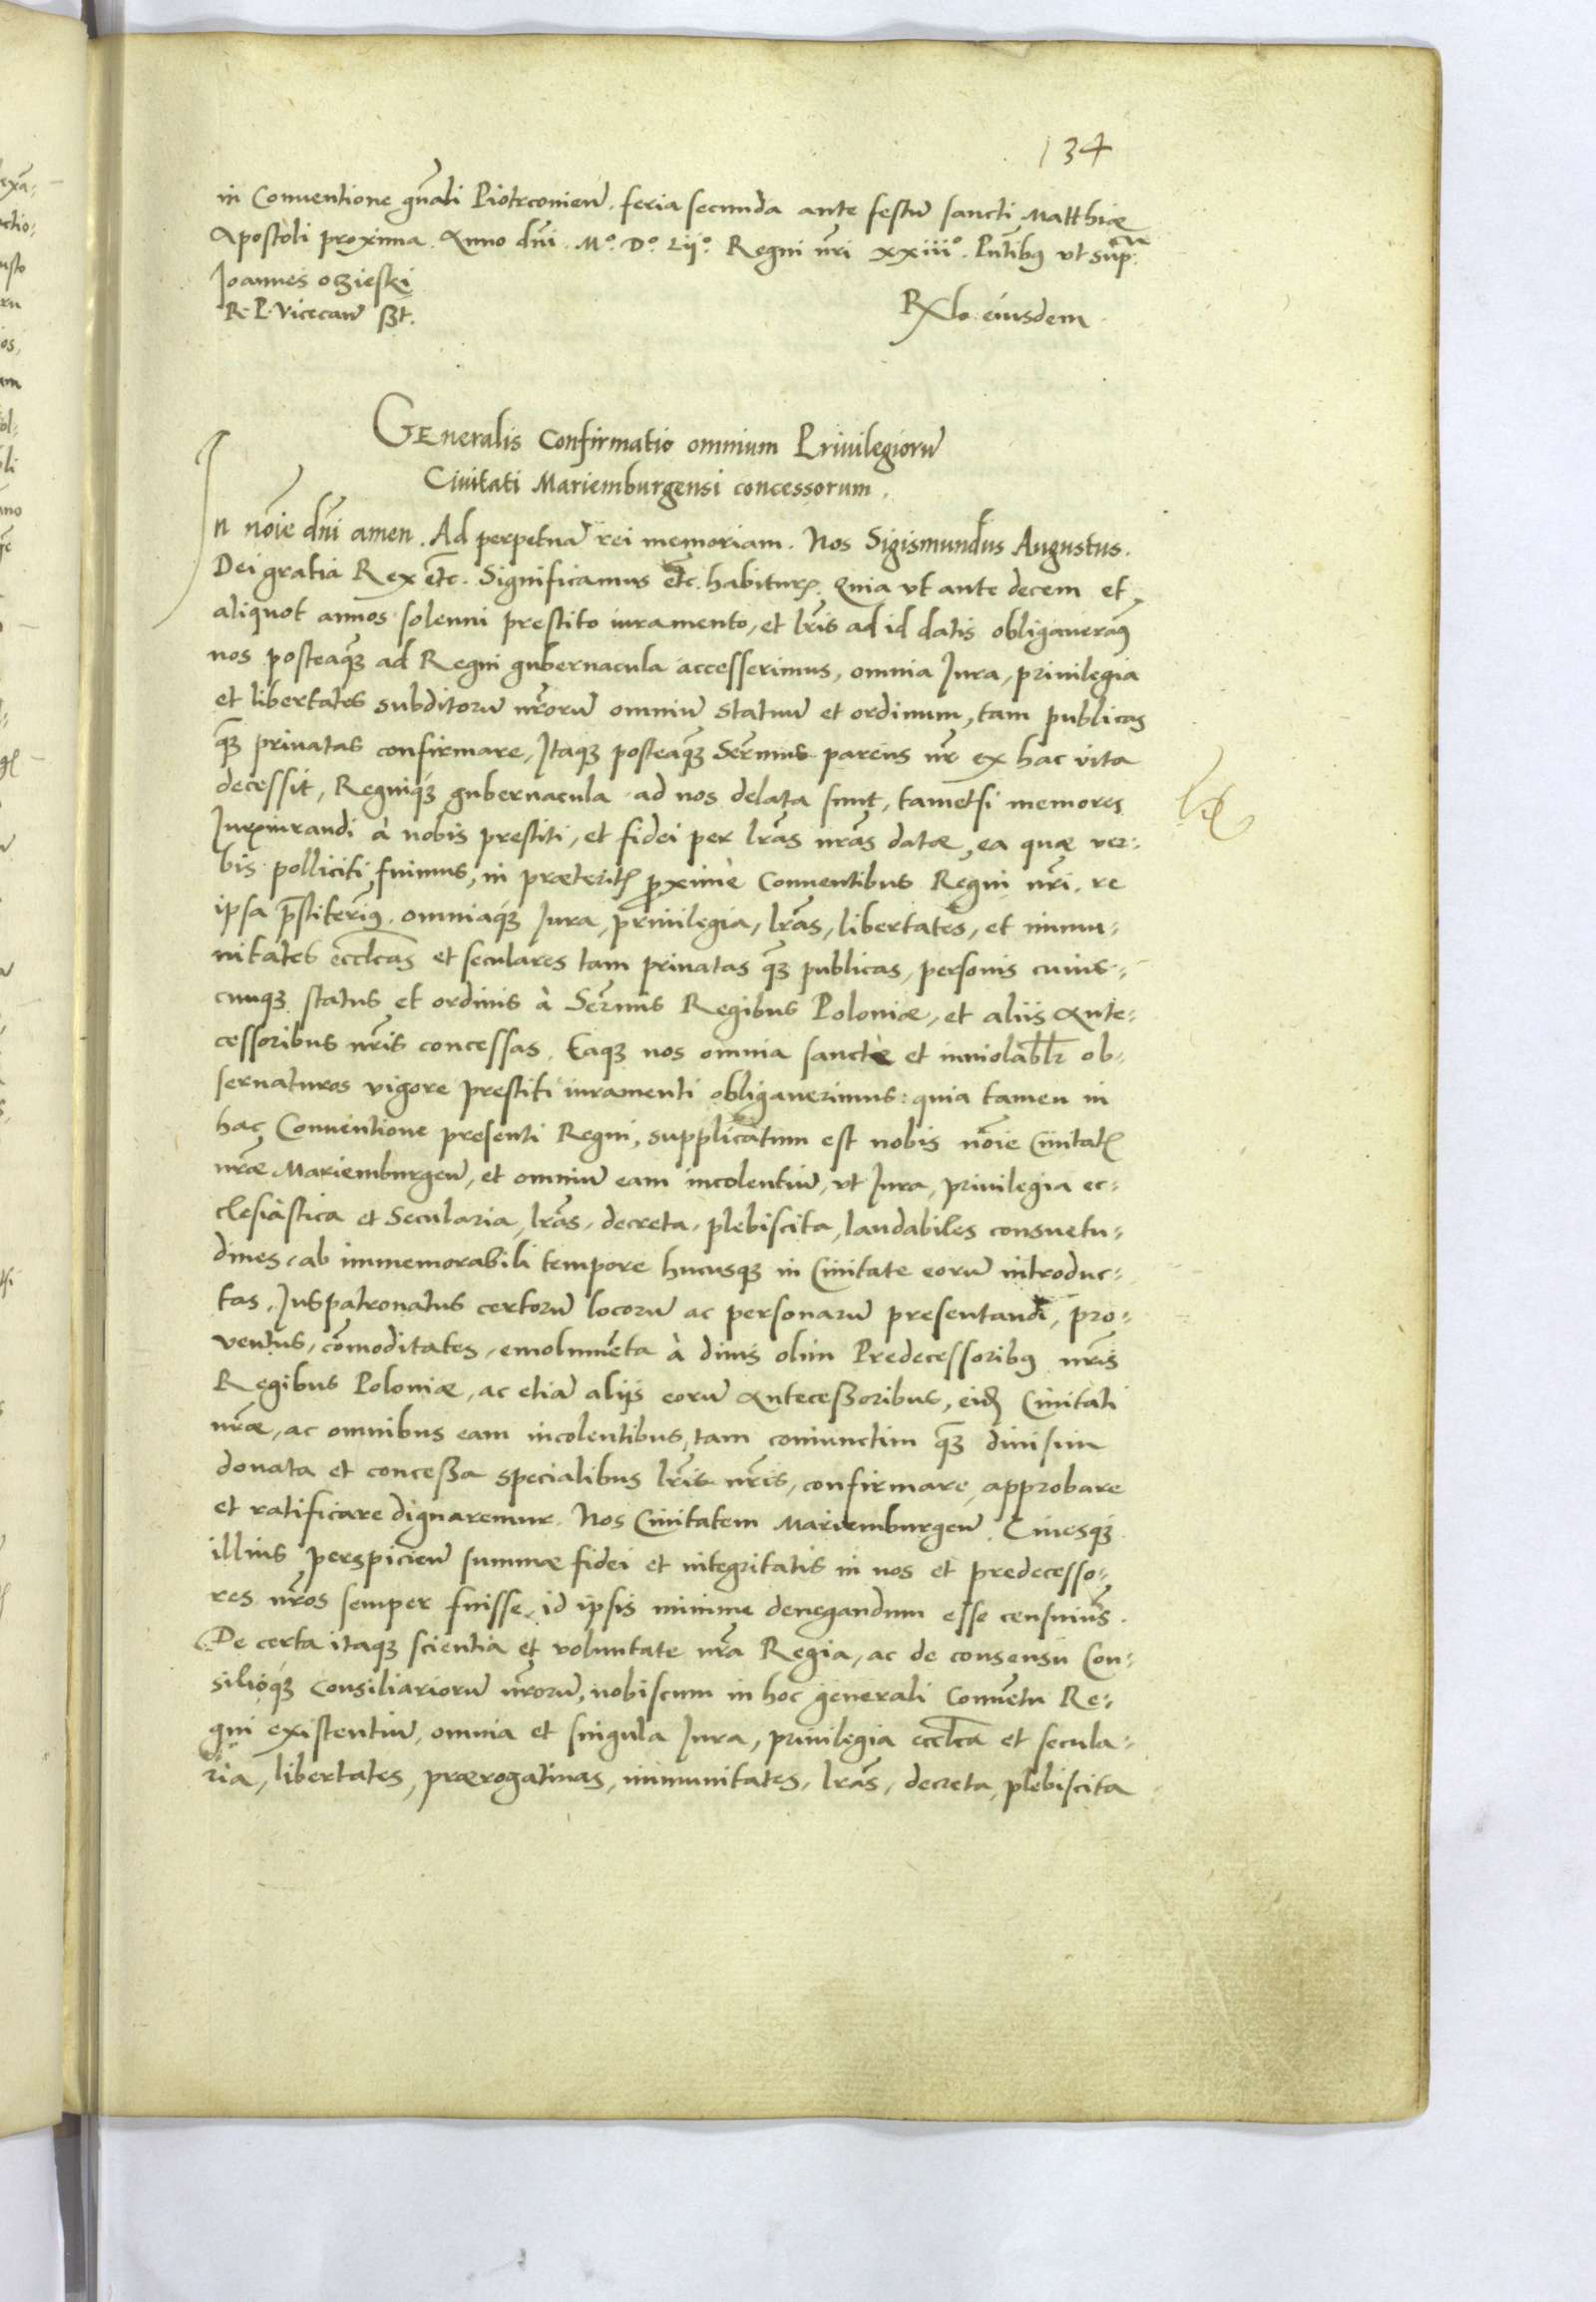 134
in Conuentione gn̄ali Piotrconien̄. feria secunda ante festū sancti Matthiæ
Apostoli proxima. Anno dn̄i. M.º D.º Lij.º Regni nr̄i xxiii.º Pn̄tibꝰ vt sup.ᵃ
Joannes oczieski
R. P. Vicecan̄ sszt.
Rl̄o eiusdem
GEneralis Confirmatio omnium Priuilegiorū
Ciuitati Mariemburgensi concessorum.
In nōie dn̄i amen. Ad perpetuā rei memoriam. Nos Sigismundus Augustus.
Dei gratia Rex etc̄. Significamus etc̄. habiturꝭ. Quia vt ante decem et
aliquot annos solenni prestito iuramento, et lr̄is ad id datis obligauerāꝰ
nos posteaqꝫ ad Regni gubernacula accesserimus, omnia Jura, priuilegia
et libertates subditorū nr̄orū omniū statuū et ordinum, tam publicas
qꝫ priuatas confirmare, Itaqꝫ posteaqꝫ Serm̄us parens nr̄ ex hac vita
decessit, Regniqꝫ gubernacula ad nos delata sunt, tametsi memores
Jurisiurandi à nobis prestiti, et fidei per lrās nrās datæ, ea quæ ver-
bis polliciti fuimus, in præteritꝭ proximè Conuentibus Regni nr̄i. re
ipsa p̄stiterimꝰ. omniaqꝫ Jura, priuilegia, lrās, libertates, et immu-
nitates ecclēas et seculares tam priuatas qꝫ publicas, personis cuius-
cunqꝫ status et ordinis à Serm̄is Regibus Poloniæ, et aliis Ante-
cessoribus nr̄is concessas. Eaqꝫ nos omnia sanctè et inuiolabl̄r ob-
seruaturos vigore prestiti iuramenti obligauerimus: quia tamen in
hac Conuentione presenti Regni, supplicatum est nobis nōie Ciuitatꝭ
nr̄æ Mariemburgen̄, et omniū eam incolentiū, vt Jura, priuilegia ec-
clesiastica et Secularia, lrās, decreta, plebiscita, laudabiles consuetu-
dines, ab immemorabili tempore hucusqꝫ in Ciuitate eorū introduc-
tas, Juspatronatus certorū locorū ac personarū presentandi, pro-
uentus, cōmoditates, emolumēta à diuis olim Predecessoribꝰ nr̄is
Regibus Poloniæ, ac etiā alijs eorū Antecessoribus, eidꝫ Ciuitati
nr̄æ, ac omnibus eam incolentibus, tam coniunctim qꝫ diuisim
donata et concessa specialibus lr̄is nr̄is, confirmare, approbare
et ratificare dignaremur. Nos Ciuitatem Mariemburgen̄. Ciuesqꝫ
illius perspicien̄ summæ fidei et integritatis in nos et predecesso-
res nr̄os semper fuisse, id ipsis minime denegandum esse censuimꝰ.
De certa itaqꝫ scientia et voluntate nrā Regia, ac de consensu Con-
silioqꝫ Consiliariorū nr̄orū, nobiscum in hoc generali Conuētu Re-
gni existentiū, omnia et singula Jura, priuilegia ecclēa et secula-
ria, libertates, prærogatiuas, immunitates, lrās, decreta, plebiscita